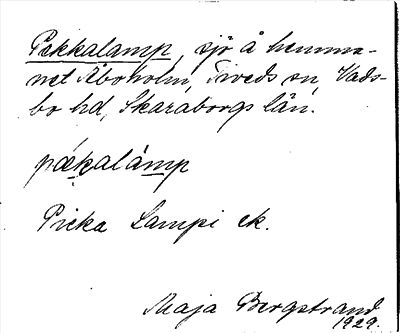 Pekkalamp, sjö å hemma-
net Åboholm, Tiveds sn, Vads-
bo hd, Skaraborgs län.
pækalàmp
Picka Lampi ek.
Maja Bergstrand
1929.